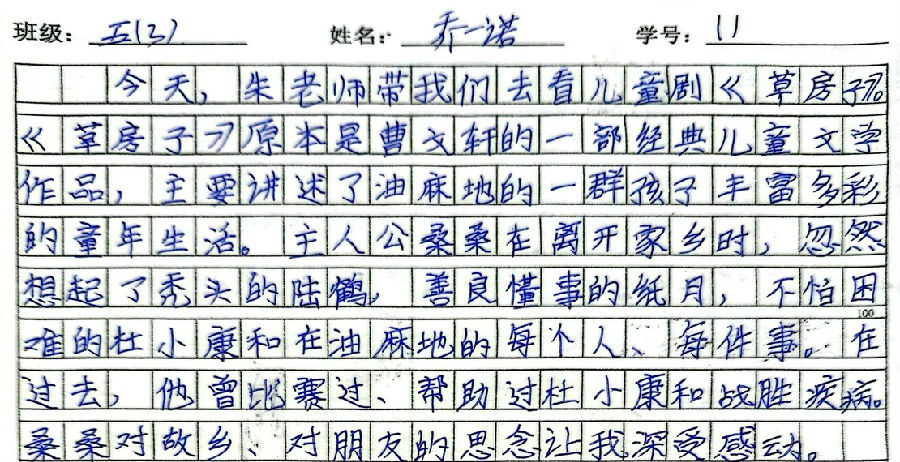 班级：五(3) 姓名：乔一诺 学号：11
今天，朱老师带我们去看儿童剧《草房子》。
《草房子》原本是曹文轩的一部经典儿童文学
作品，主要讲述了油麻地的一群孩子丰富多彩
的童年生活。主人公桑桑在离开家乡时，忽然
想起了秃头的陆鹤，善良懂事的纸月，不怕困
100
难的杜小康和在油麻地的每个人、每件事。在
过去，他曾比赛过、帮助过杜小康和战胜疾病。
桑桑对故乡、对朋友的思念让我深受感动。